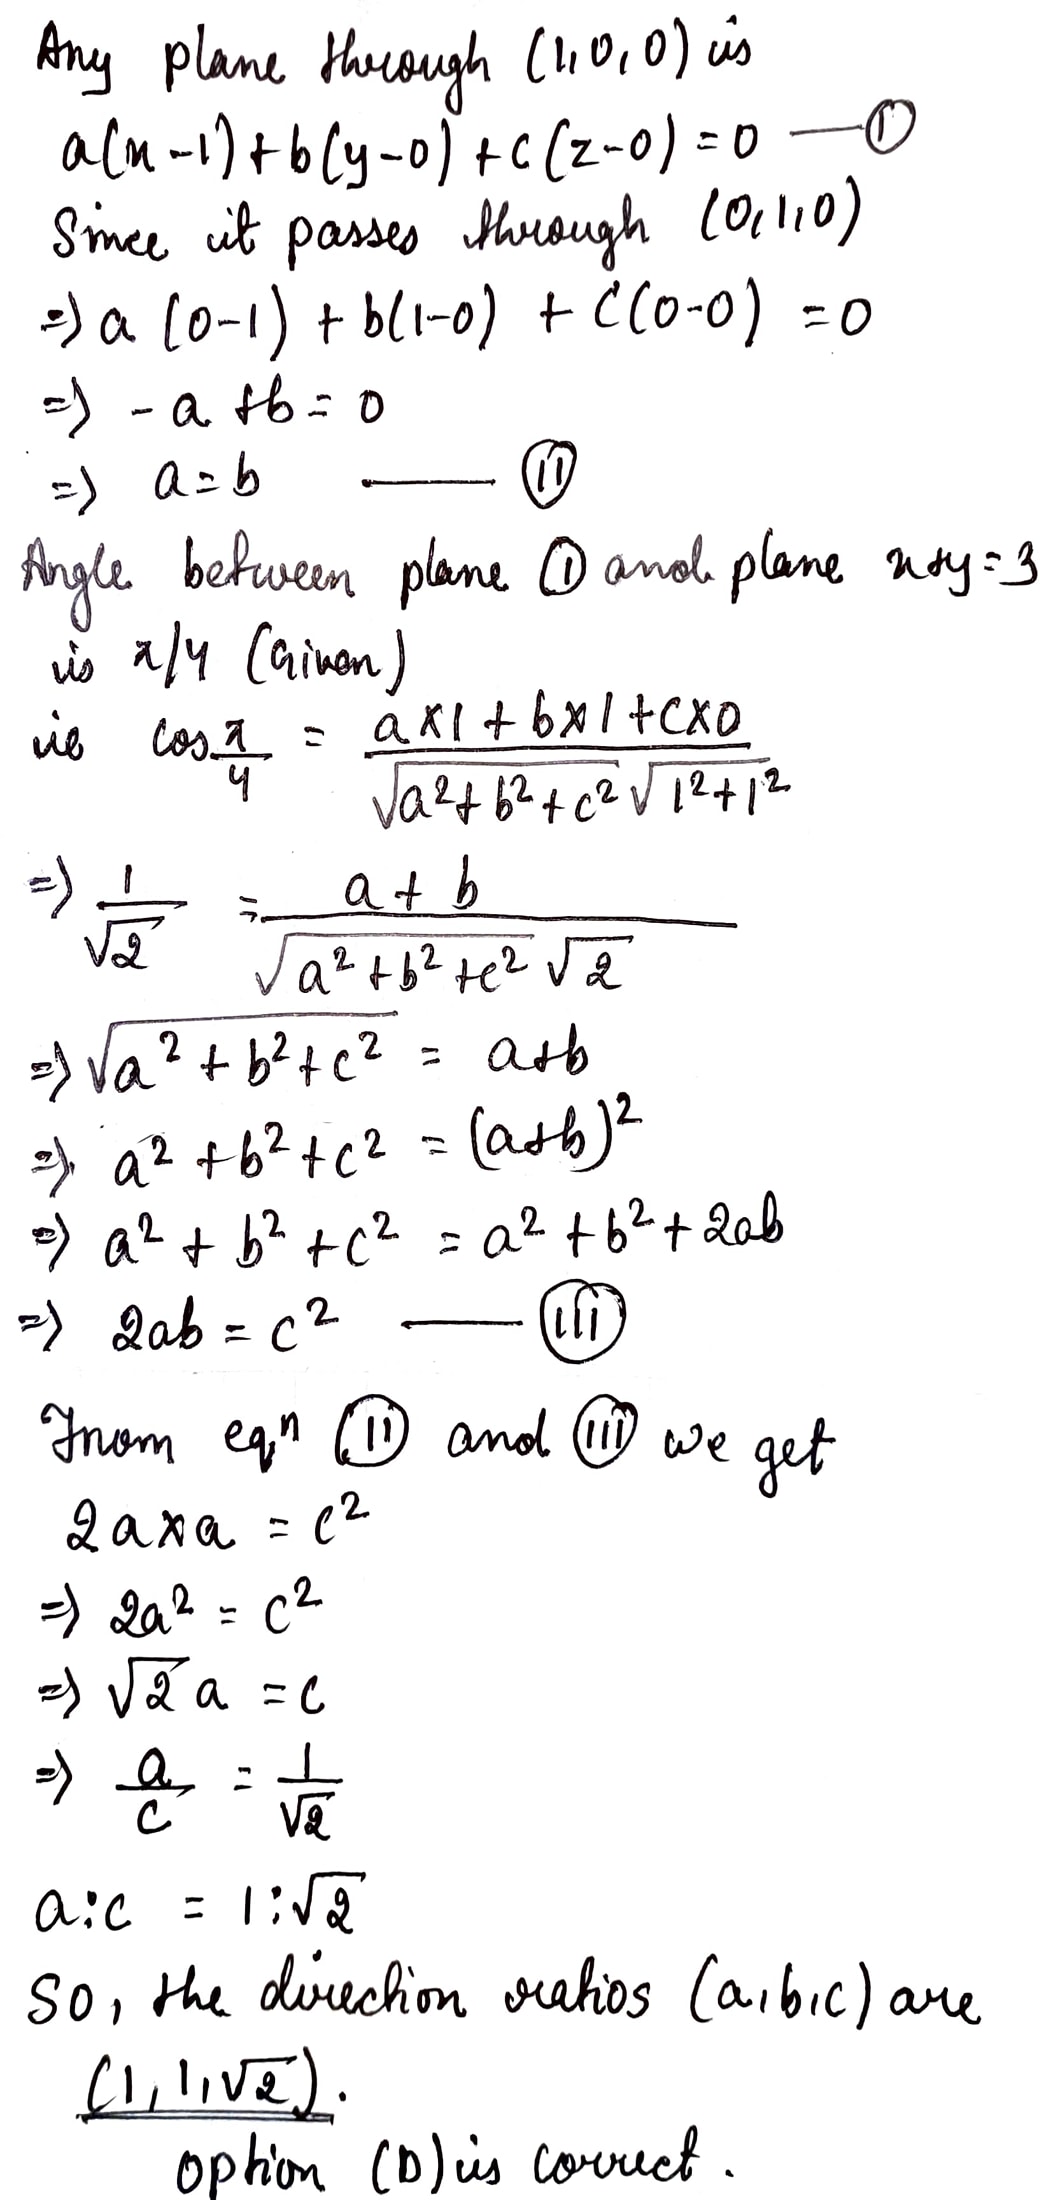 Any plane through (1,0,0) is
a(x-1)+b(y-0)+c(z-0)=0 —①
Since it passes through (0,1,0)
=> a (0-1) + b(1-0) + c(0-0) =0
=> -a+b=0
=> a=b — ⑪
Angle between plane ① and plane x+y=3
is π/4 (Given)
ie cos π/4 = (a×1+b×1+c×0)/(√(a²+b²+c²) √(1²+1²))
=> 1/√2 = (a+b)/(√(a²+b²+c²) √2)
=> √(a²+b²+c²) = a+b
=> a²+b²+c² = (a+b)²
=> a²+b²+c² = a²+b²+2ab
=> 2ab=c² — (III)
From eqⁿ (II) and (III) we get
2a×a = c²
=> 2a² = c²
=> √2 a = c
=> a/c = 1/√2
a:c = 1:√2
So, the direction ratios (a,b,c) are
(1,1,√2).
option (D) is correct.